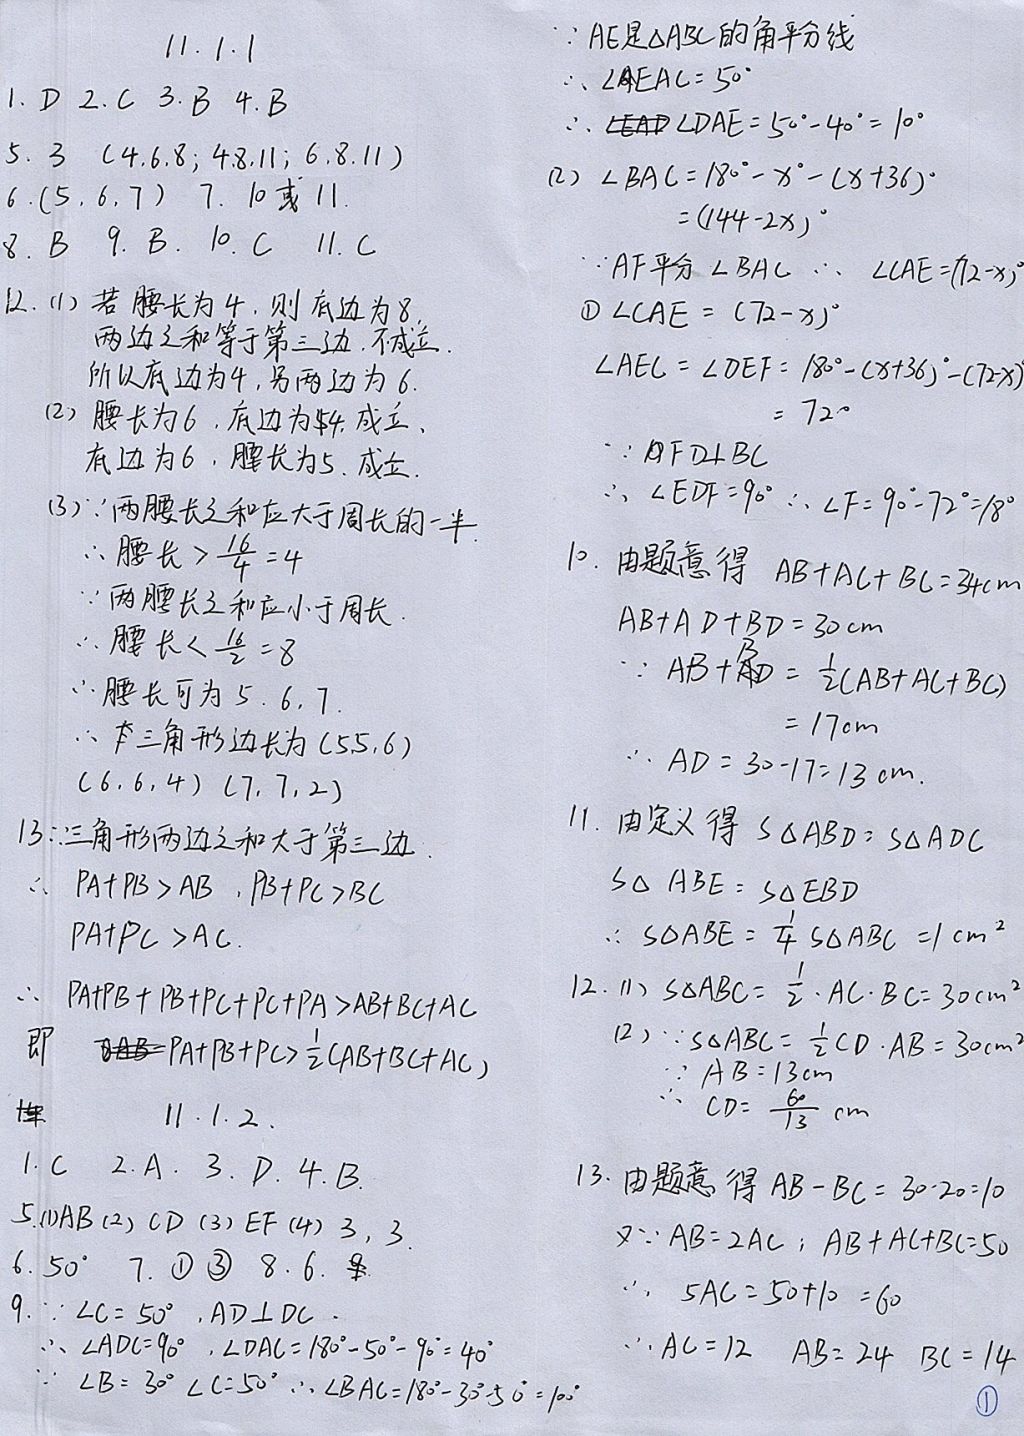 11.1.1
1. D 2. C 3. B 4. B
5. 3 (4.6.8; 4.8.11; 6.8.11)
6. (5, 6, 7) 7. 10或11.
8. B 9. B. 10. C 11. C
12. (1) 若腰长为4, 则底边为8,
两边之和等于第三边, 不成立.
所以底边为4, 另两边为6.
(2) 腰长为6, 底边为4, 成立、
底边为6, 腰长为5, 成立.
(3) ∵两腰长之和应大于周长的一半
∴腰长>16/4=4
∵两腰长之和应小于周长.
∴腰长<16/2=8
∴腰长可为5.6.7.
∴三角形边长为(5,5,6)
(6,6,4) (7,7,2)
13∵三角形两边之和大于第三边.
∴ PA+PB>AB, PB+PC>BC
PA+PC>AC.
∴ PA+PB+PB+PC+PC+PA>AB+BC+AC
即 PA+PB+PC>1/2(AB+BC+AC)
11.1.2.
1. C 2. A. 3. D. 4. B.
5.(1)AB (2) CD (3) EF (4) 3, 3.
6. 50° 7. ①③ 8. 6.
9. ∵∠C=50°, AD⊥DC.
∴∠ADC=90°, ∠DAC=180°-50°-90°=40°
∵∠B=30° ∠C=50° ∴∠BAC=180°-30°-50°=100°
∵AE是△ABC的角平分线
∴∠EAC=50°
∴∠DAE=50°-40°=10°
(2) ∠BAC=180°-x°-(x+36)°
=(144-2x)°
∵AF平分∠BAC ∴ ∠CAE=(72-x)°
① ∠CAE=(72-x)°
∠AEC=∠DEF=180°-(x+36)°-(72-x)°
=72°
∵FD⊥BC
∴∠EDF=90° ∴∠F=90°-72°=18°
10. 由题意得 AB+AC+BC=34cm
AB+AD+BD=30cm
∵ AB+BD=1/2(AB+AC+BC)
=17cm
∴ AD=30-17=13cm.
11. 由定义得 S△ABD=S△ADC
S△ABE=S△EBD
∴ S△ABE=1/4 S△ABC=1cm²
12. (1) S△ABC=1/2·AC·BC=30cm²
(2) ∵S△ABC=1/2CD·AB=30cm²
∵ AB=13cm
∴ CD=60/13 cm
13. 由题意得 AB-BC=30-20=10
又∵AB=2AC, AB+AC+BC=50
∴ 5AC=50+10=60
∴AC=12 AB=24 BC=14
①